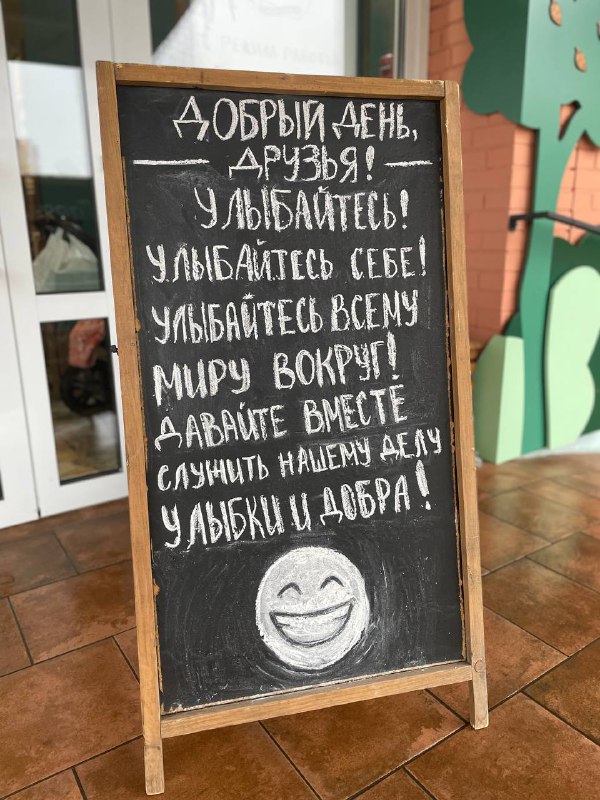 РЕЖИМ РАБОТЫ
ДОБРЫЙ ДЕНЬ,
ДРУЗЬЯ!
УЛЫБАЙТЕСЬ!
УЛЫБАЙТЕСЬ СЕБЕ!
УЛЫБАЙТЕСЬ ВСЕМУ
МИРУ ВОКРУГ!
ДАВАЙТЕ ВМЕСТЕ
СЛУЖИТЬ НАШЕМУ ДЕЛУ
УЛЫБКИ И ДОБРА!